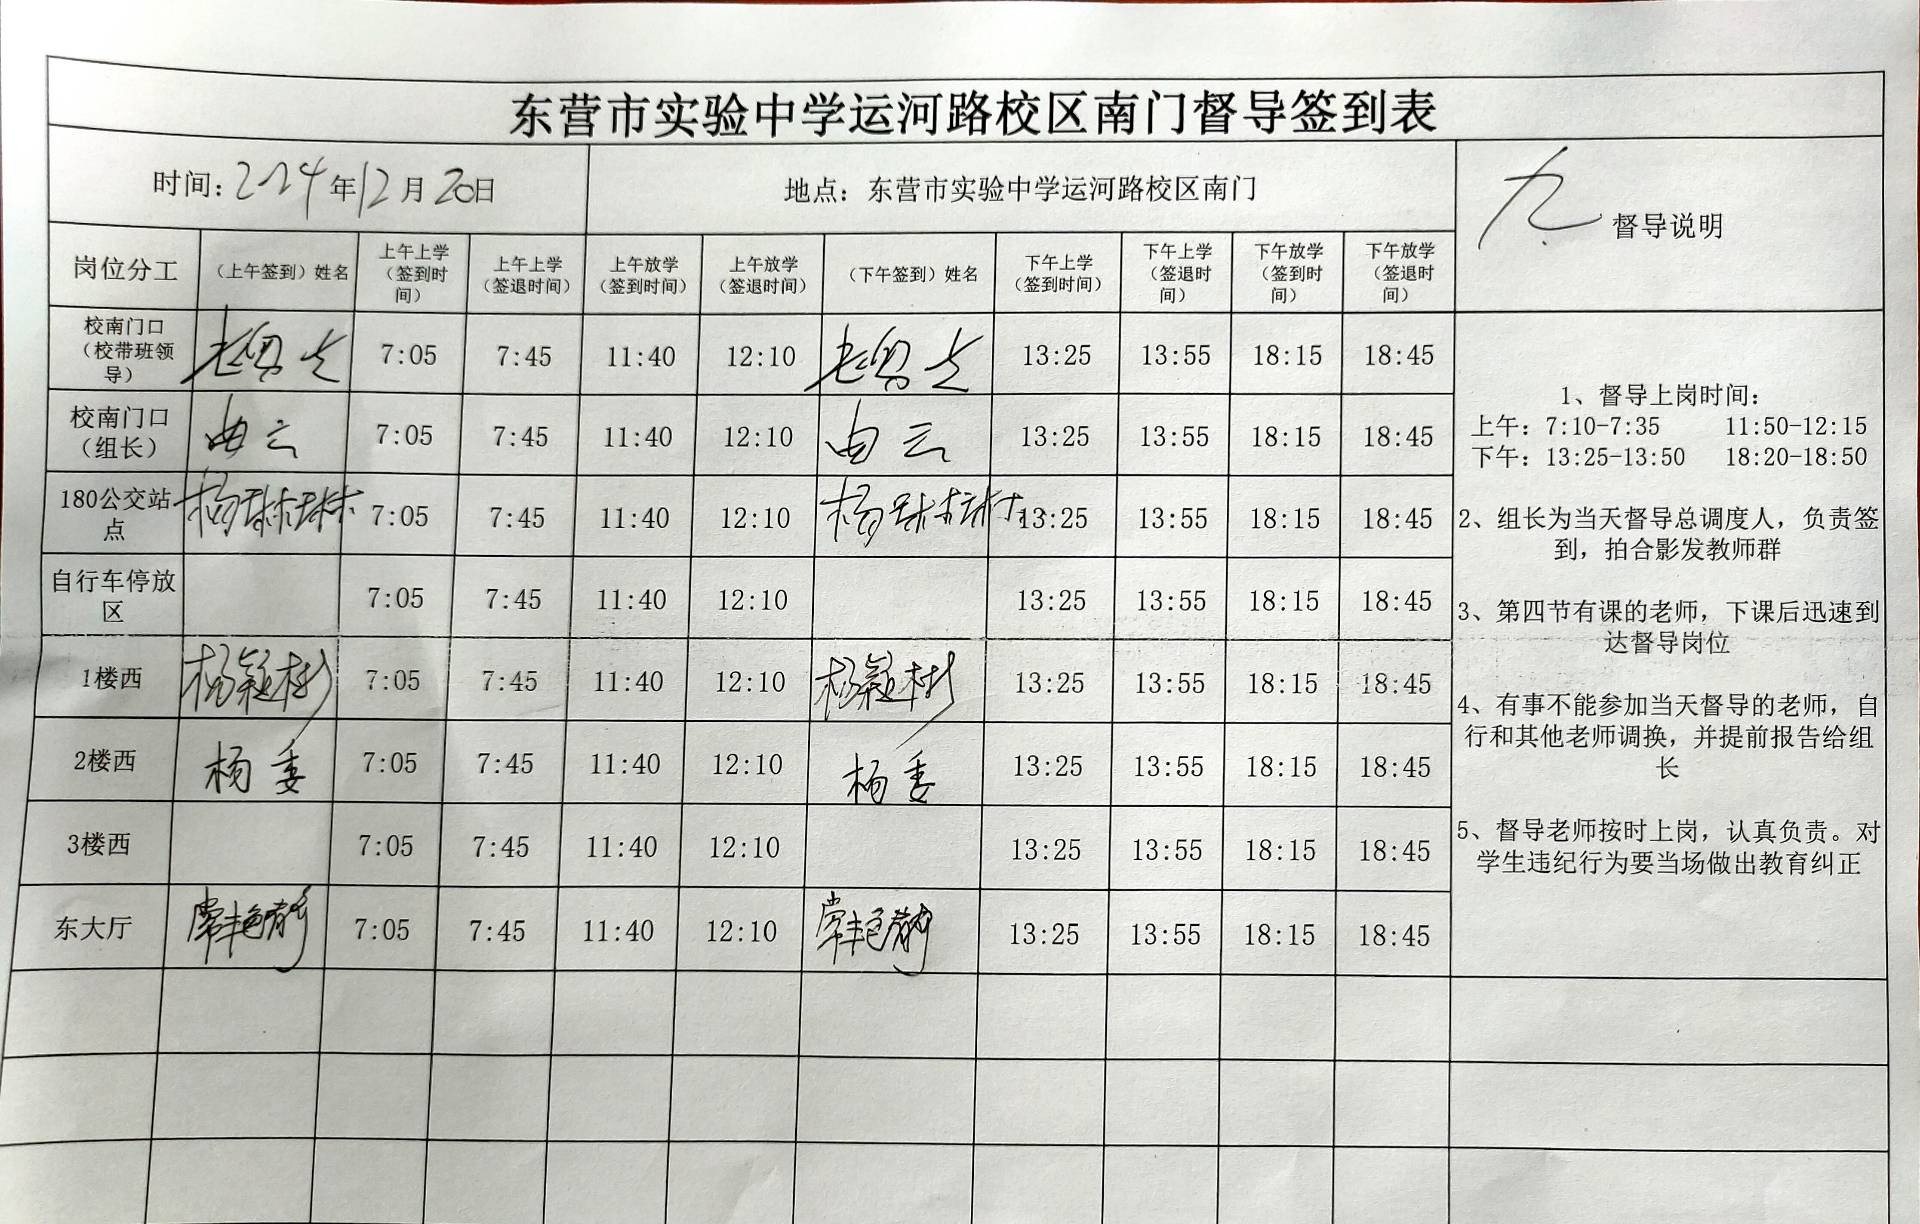 东营市实验中学运河路校区南门督导签到表
时间: 2024年12月20日
地点：东营市实验中学运河路校区南门
九 督导说明
岗位分工
（上午签到）姓名
上午上学
（签到时
间）
上午上学
（签退时间）
上午放学
（签到时间）
上午放学
（签退时间）
（下午签到）姓名
下午上学
（签到时间）
下午上学
（签退时
间）
下午放学
（签到时
间）
下午放学
（签退时
间）
校南门口
（校带班领
导）
7:05 7:45 11:40 12:10 13:25 13:55 18:15 18:45
校南门口
（组长）
曲云 7:05 7:45 11:40 12:10 曲云 13:25 13:55 18:15 18:45
180公交站
点
杨琳琳 7:05 7:45 11:40 12:10 杨琳琳 13:25 13:55 18:15 18:45
自行车停放
区
7:05 7:45 11:40 12:10 13:25 13:55 18:15 18:45
1楼西 杨颖彬 7:05 7:45 11:40 12:10 杨颖彬 13:25 13:55 18:15 18:45
2楼西 杨委 7:05 7:45 11:40 12:10 杨委 13:25 13:55 18:15 18:45
3楼西 7:05 7:45 11:40 12:10 13:25 13:55 18:15 18:45
东大厅 常艳静 7:05 7:45 11:40 12:10 常艳静 13:25 13:55 18:15 18:45
1、督导上岗时间：
上午：7:10-7:35 11:50-12:15
下午：13:25-13:50 18:20-18:50
2、组长为当天督导总调度人，负责签
到，拍合影发教师群
3、第四节有课的老师，下课后迅速到
达督导岗位
4、有事不能参加当天督导的老师，自
行和其他老师调换，并提前报告给组
长
5、督导老师按时上岗，认真负责。对
学生违纪行为要当场做出教育纠正